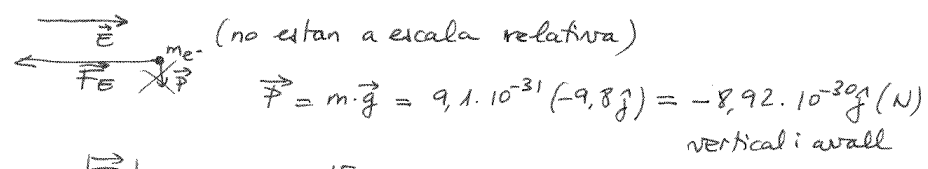 E⃗ (no estan a escala relativa)
F⃗_E m_e- P⃗
P⃗ = m·g⃗ = 9,1·10^-31 (-9,8ĵ) = -8,92·10^-30 ĵ (N)
vertical i avall